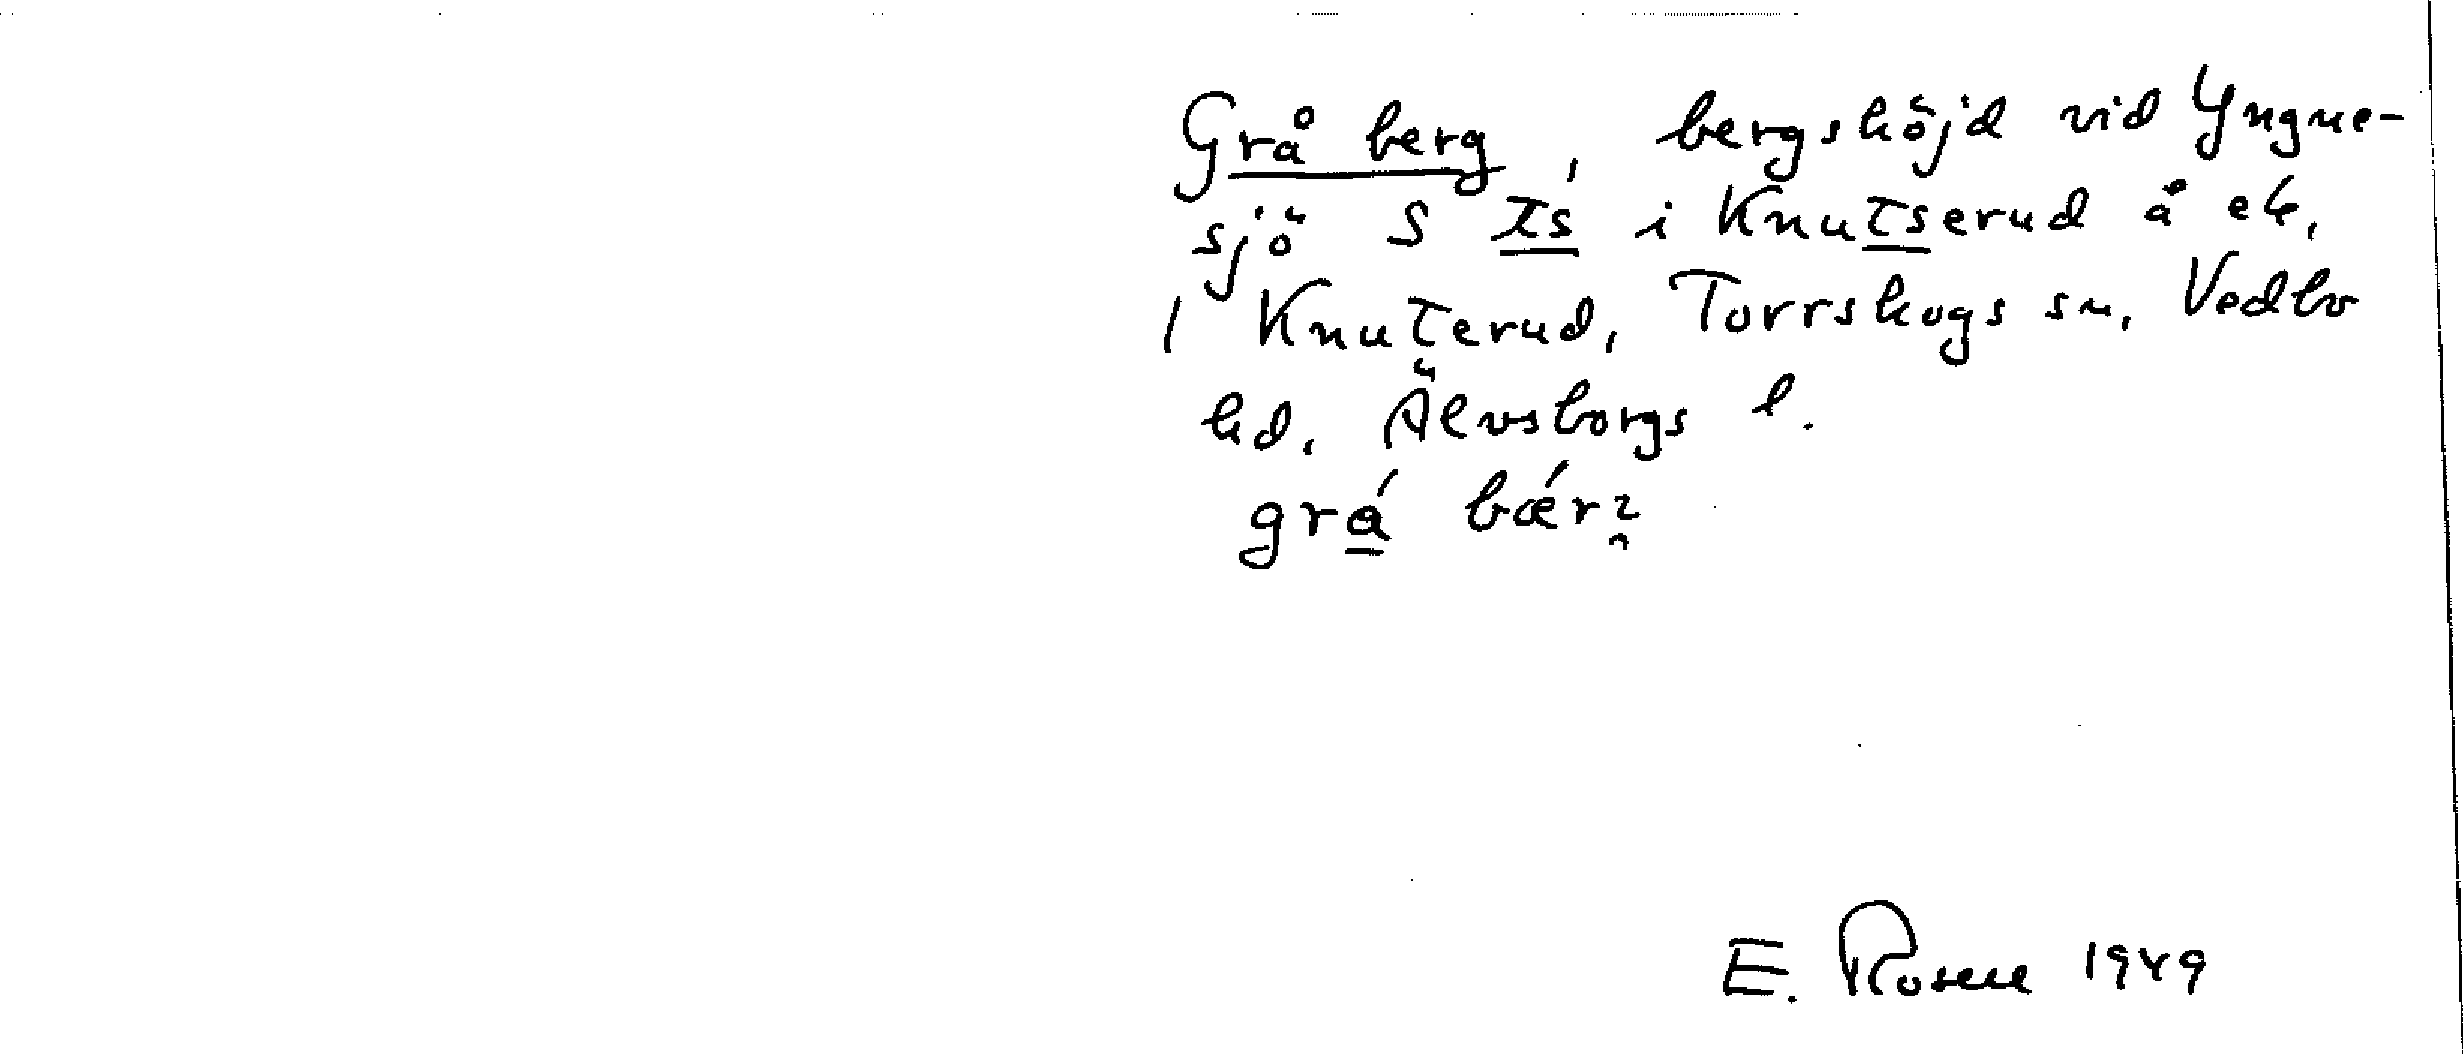 Grå berg, bergshöjd vid Yngne-
sjö S ts i Knutserud å ek.
1 Knuterud, Torrskogs sn, Vedbo
hd, Älvsborgs l.
grá bǽr
E. Rosell 1949